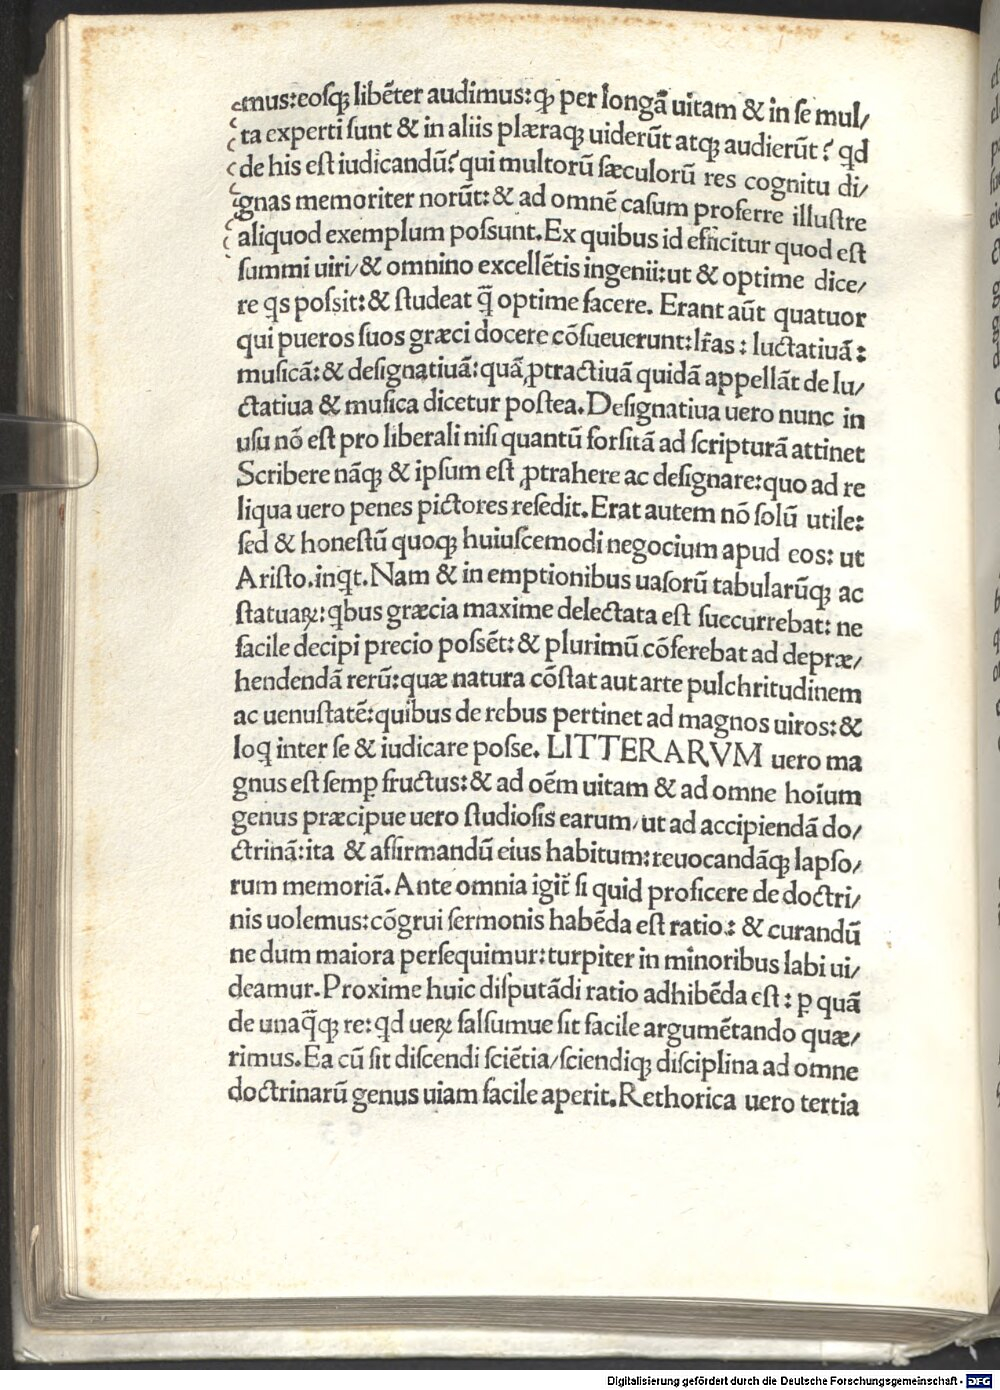 mus:eoſqꝫ libẽter audimus:ꝙ per longã uitam & in ſe mul/
ta experti ſunt & in aliis plæraqꝫ uiderũt atqꝫ audierũt? qd
de his eſt iudicandũ? qui multorũ ſæculorũ res cognitu di/
gnas memoriter norũt:& ad omnẽ caſum proferre illuſtre
aliquod exemplum poſsunt.Ex quibus id efficitur quod eſt
ſummi uiri/& omnino excellẽtis ingenii:ut & optime dice/
re qs poſsit:& ſtudeat q̃ optime facere. Erant aũt quatuor
qui pueros ſuos græci docere cõſueuerunt:lr̃as : luctatiuã:
muſicã:& deſignatiuã:quã ꝓtractiuã quidã appellãt de lu/
ctatiua & muſica dicetur poſtea.Deſignatiua uero nunc in
uſu nõ eſt pro liberali niſi quantũ forſitã ad ſcripturã attinet
Scribere nãqꝫ & ipſum eſt ꝓtrahere ac deſignare:quo ad re
liqua uero penes pictores reſedit.Erat autem nõ ſolũ utile:
ſed & honeſtũ quoqꝫ huiuſcemodi negocium apud eos: ut
Ariſto.inqt.Nam & in emptionibus uaſorũ tabularũqꝫ ac
ſtatuaꝝ:qbus græcia maxime delectata eſt ſuccurrebat: ne
facile decipi precio poſsẽt:& plurimũ cõferebat ad depræ/
hendendã rerũ:quæ natura cõſtat aut arte pulchritudinem
ac uenuſtatẽ:quibus de rebus pertinet ad magnos uiros:&
loq inter ſe & iudicare poſse. LITTERARVM uero ma
gnus eſt ſemꝑ fructus:& ad oẽm uitam & ad omne hoĩum
genus præcipue uero ſtudioſis earum/ut ad accipiendã do/
ctrinã:ita & affirmandũ eius habitum:reuocandãqꝫ lapſo/
rum memoriã.Ante omnia igit̃ ſi quid proficere de doctri/
nis uolemus:cõgrui ſermonis habẽda eſt ratio: & curandũ
ne dum maiora perſequimur:turpiter in minoribus labi ui/
deamur.Proxime huic diſputãdi ratio adhibẽda eſt: ꝑ quã
de unaq̃qꝫ re:qd ueꝝ falſumue ſit facile argumẽtando quæ/
rimus.Ea cũ ſit diſcendi ſciẽtia/ſciendiqꝫ diſciplina ad omne
doctrinarũ genus uiam facile aperit.Rethorica uero tertia
Digitalisierung gefördert durch die Deutsche Forschungsgemeinschaft - DFG